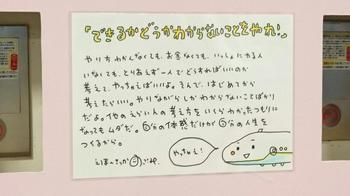 「できるかどうかわからないことをやれ!」
やり方わかんなくても、お金なくても、いっしょにやる人
いなくても、とりあえず一人でどうすればいいのか
考えて、やっちゃえばいいよ。そんで、はじめてから
考えたらいい。やりながらしかわからないことばかり
だよ。他のえらい人の考え方をいくらわかったつもりに
なってもムダだ。自分の体感だけが自分の人生を
つくるから。
えほんさっか
やっちゃえ!